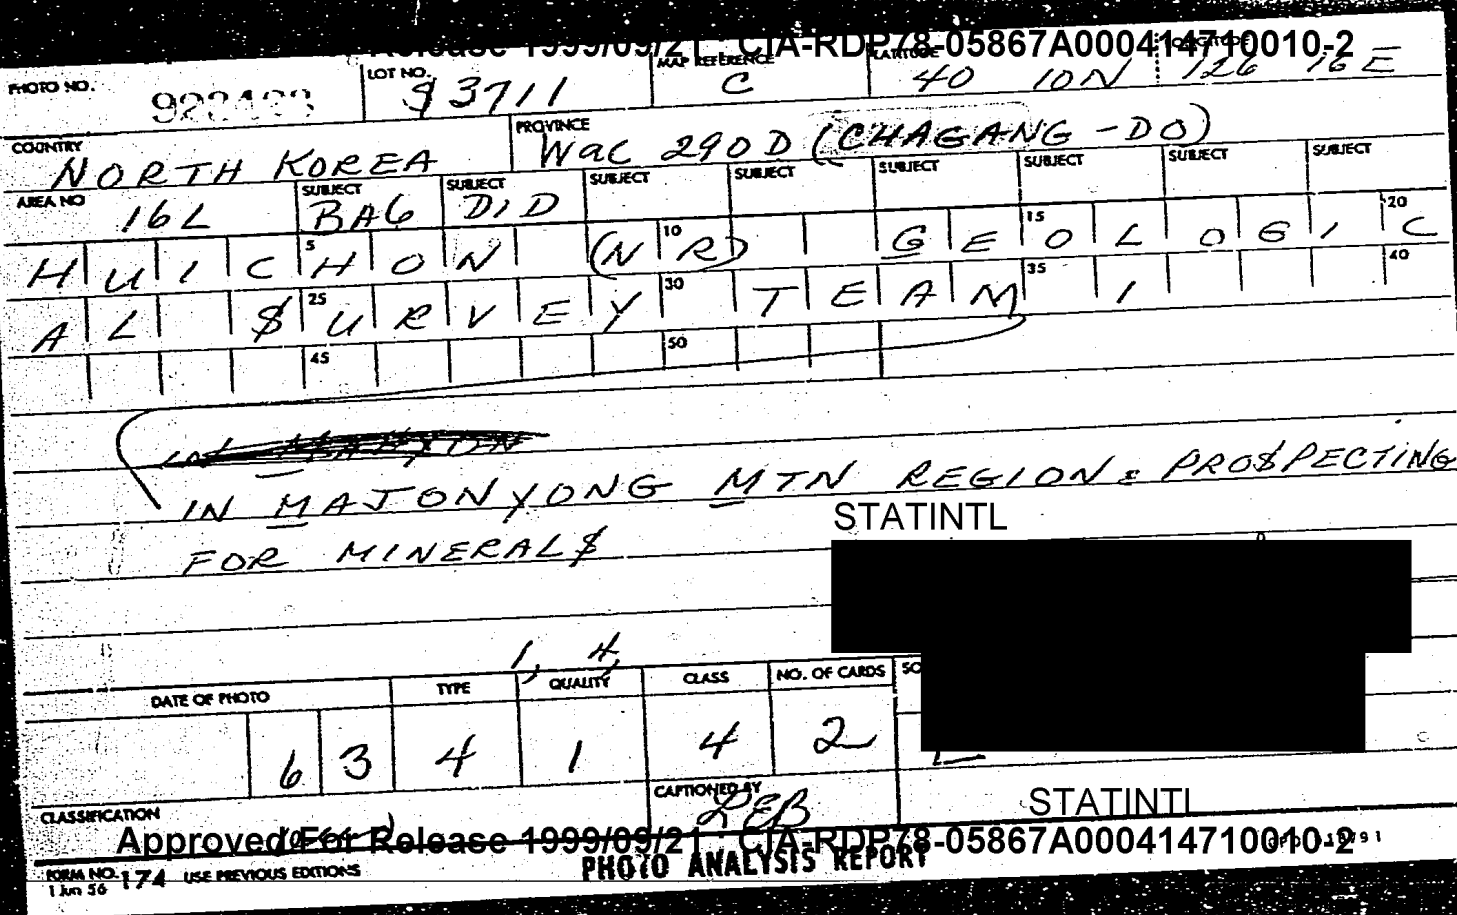 Release 1999/09/21 : CIA-RDP78-05867A000414710010-2
PHOTO NO. LOT NO. 93711 MAP REFERENCE C LATITUDE 40 10N 126 16 E
COUNTRY NORTH KOREA PROVINCE WAC 290D (CHAGANG-DO)
AREA NO 16L SUBJECT BAG SUBJECT DID SUBJECT SUBJECT SUBJECT SUBJECT SUBJECT SUBJECT
HUICHON (NR) GEOLOGIC
5 10 15 20
AL SURVEY TEAM,
25 30 35 40
45 50
IN MAJONYONG MTN REGION: PROSPECTING
FOR MINERALS
STATINTL
1, 4,
DATE OF PHOTO TYPE QUALITY CLASS NO. OF CARDS SO
63 4 1 4 2
CLASSIFICATION CAPTIONED BY LEB
STATINTL
Approved For Release 1999/09/21 : CIA-RDP78-05867A000414710010-2
FORM NO. 174 USE PREVIOUS EDITIONS PHOTO ANALYSIS REPORT
1 Jun 56